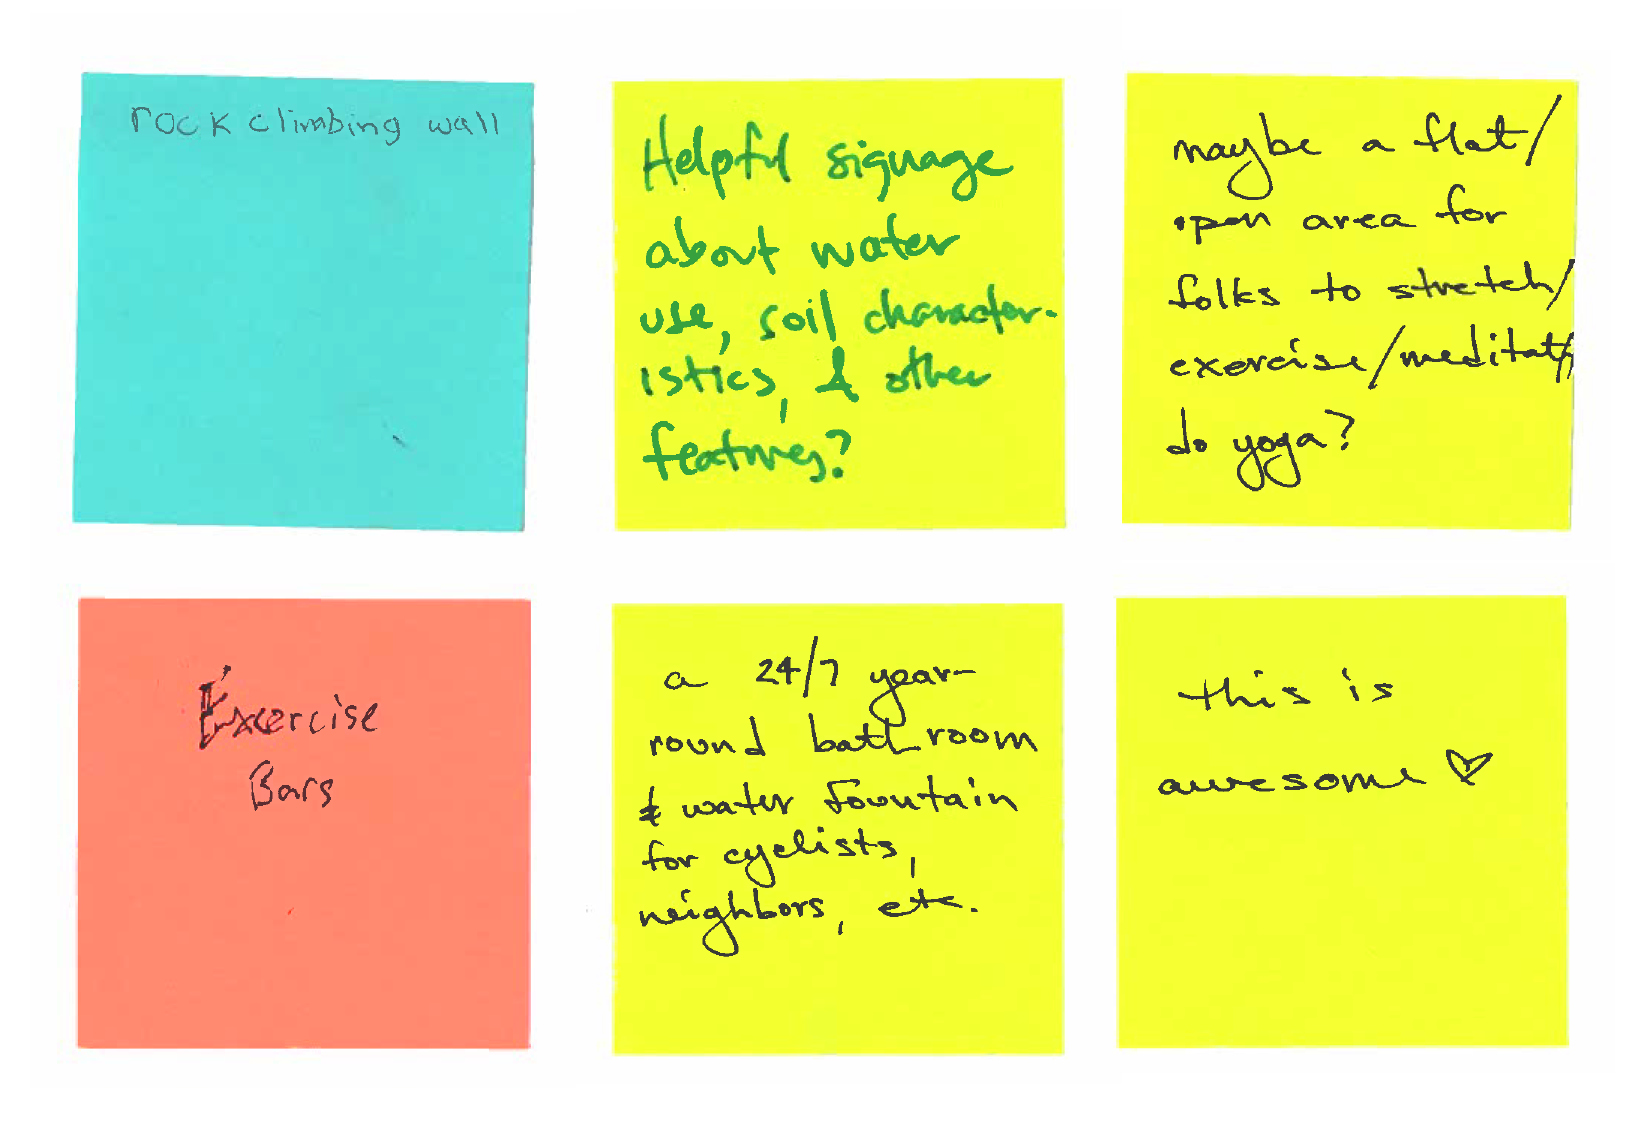 rock climbing wall
Helpful signage
about water
use, soil character-
istics, & other
features?
maybe a flat/
open area for
folks to stretch/
exercise/meditate/
do yoga?
Exercise
Bars
a 24/7 year-
round bathroom
& water fountain
for cyclists,
neighbors, etc.
this is
awesome ♡